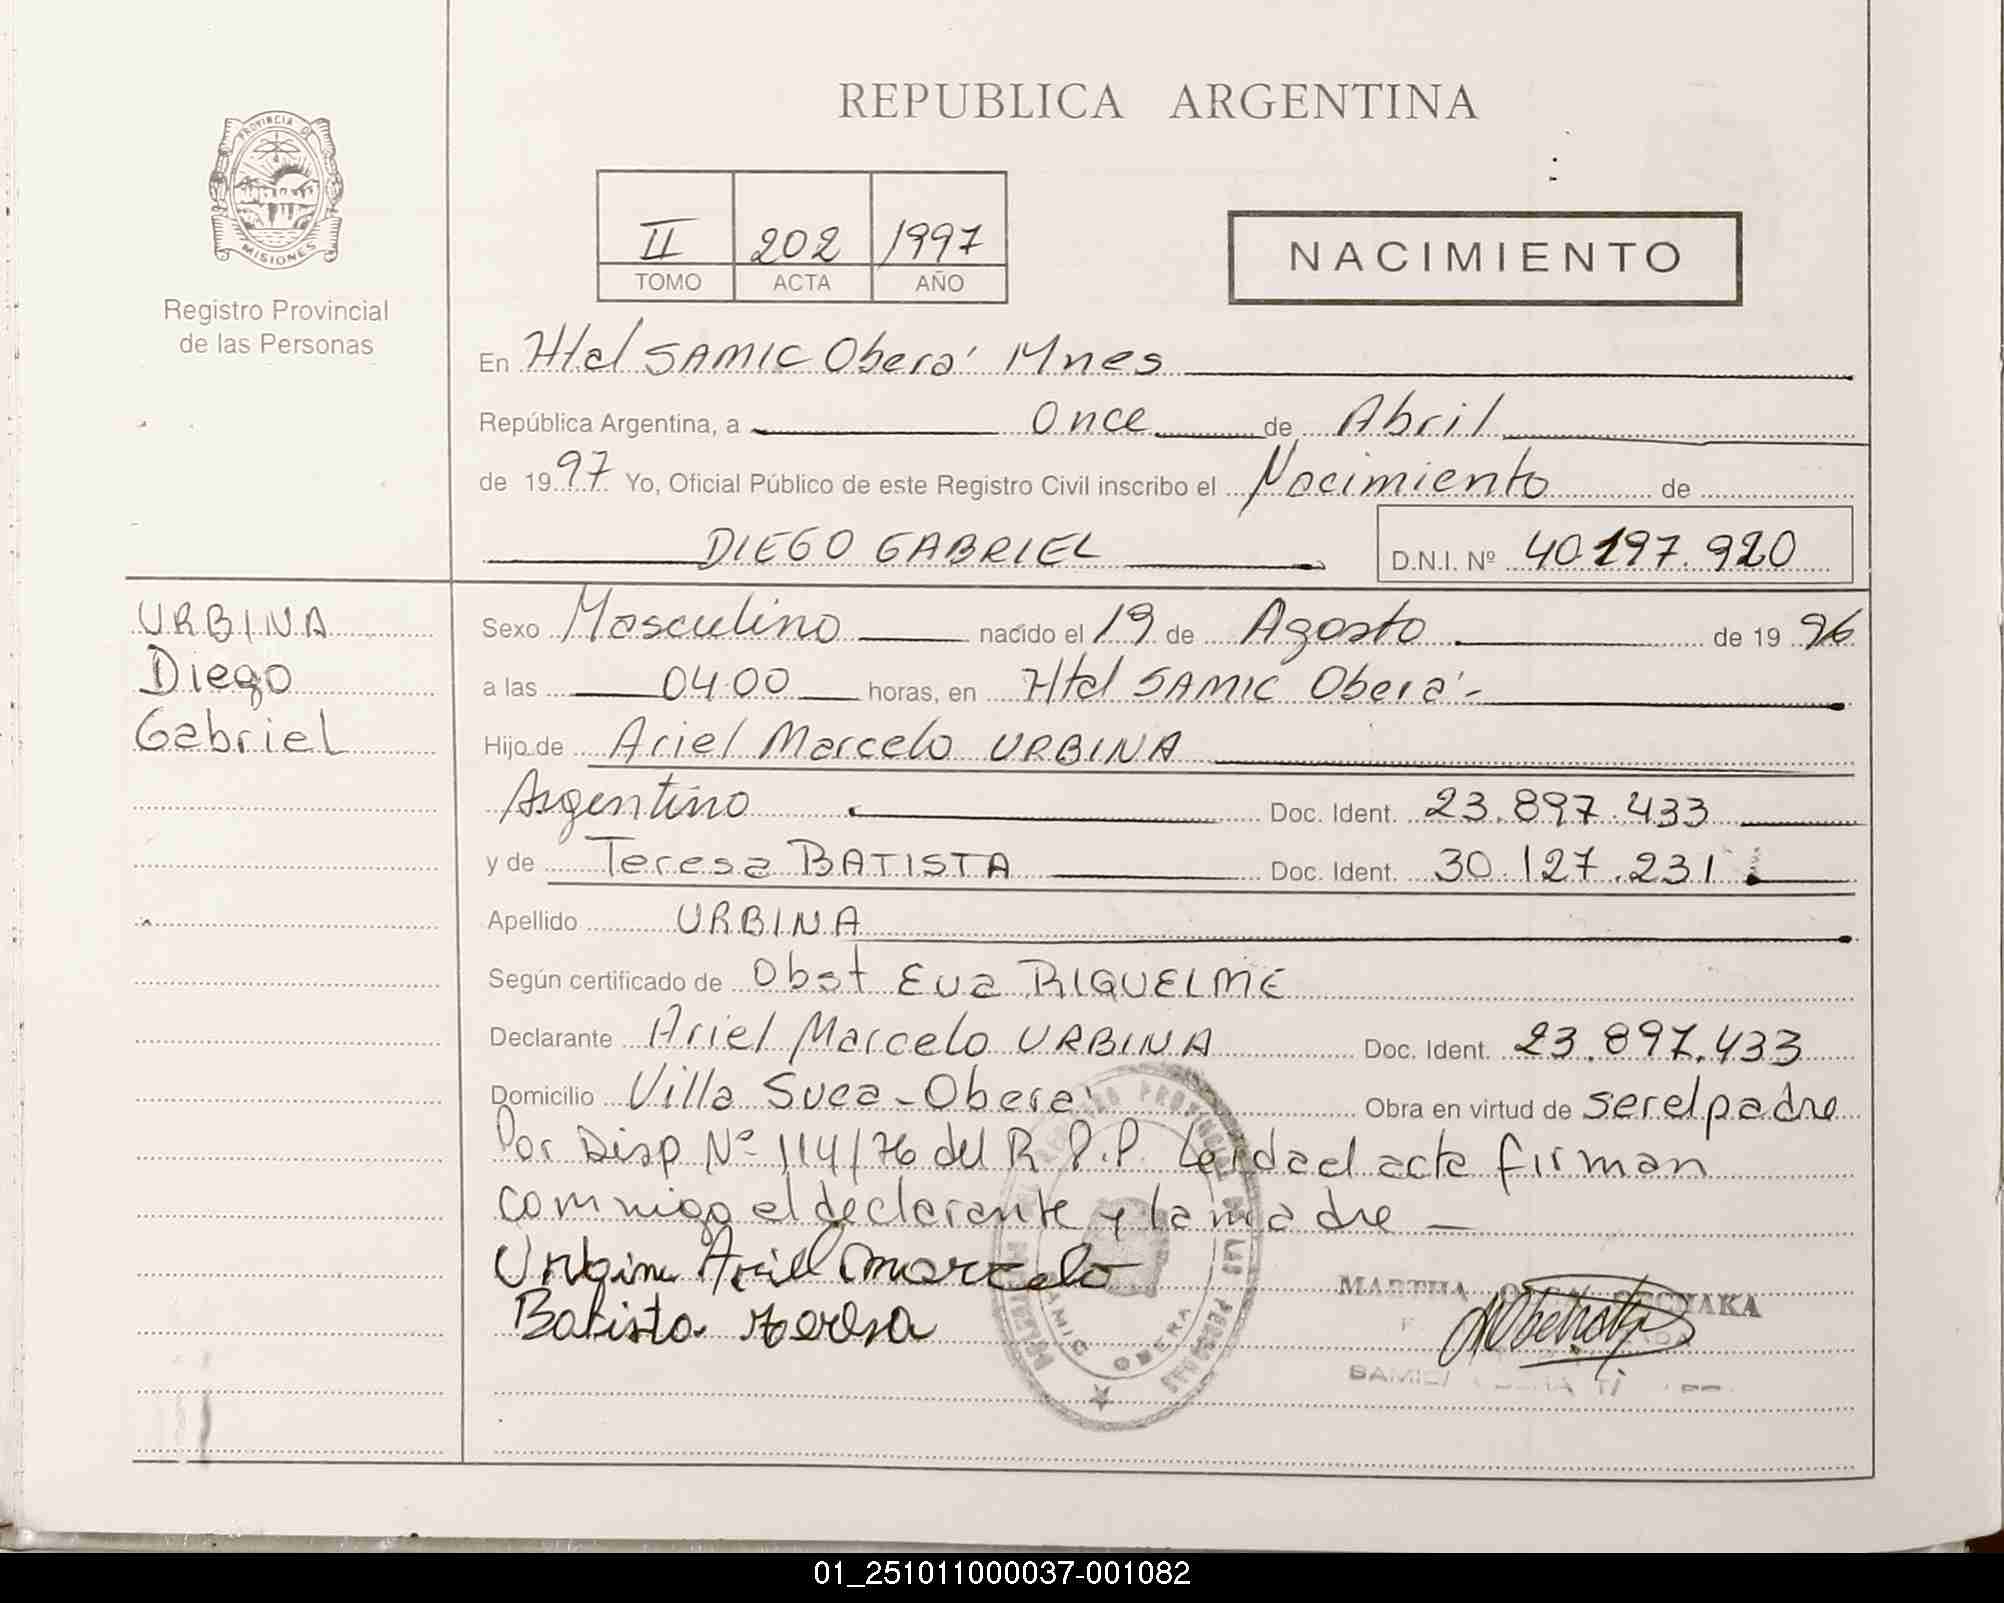 REPUBLICA ARGENTINA
PROVINCIA DE
MISIONES
Registro Provincial
de las Personas
II 202 1997
TOMO ACTA AÑO
NACIMIENTO
En Htal SAMIC Oberá Mnes
República Argentina, a Once de Abril
de 1997 Yo, Oficial Público de este Registro Civil inscribo el Nacimiento de
DIEGO GABRIEL D.N.I. Nº 40.197.920
URBINA
Diego
Gabriel
Sexo Masculino nacido el 19 de Agosto de 1996
a las 04:00 horas, en Htal SAMIC Oberá-
Hijo de Ariel Marcelo URBINA
Argentino Doc. Ident. 23.897.433
y de Teresa BATISTA Doc. Ident. 30.127.231
Apellido URBINA
Según certificado de Obst Eva RIQUELME
Declarante Ariel Marcelo URBINA Doc. Ident. 23.897.433
Domicilio Villa Suea - Oberá Obra en virtud de ser el padre
Por Disp Nº 114/76 del R.P.P. Leida el acta firman
commigo el declarante y la madre —
Urbina Ariel Marcelo
Batista teresa
PROVINCIAL DE LAS PERSONAS
SAMIC OBERA
MARTHA
01_251011000037-001082